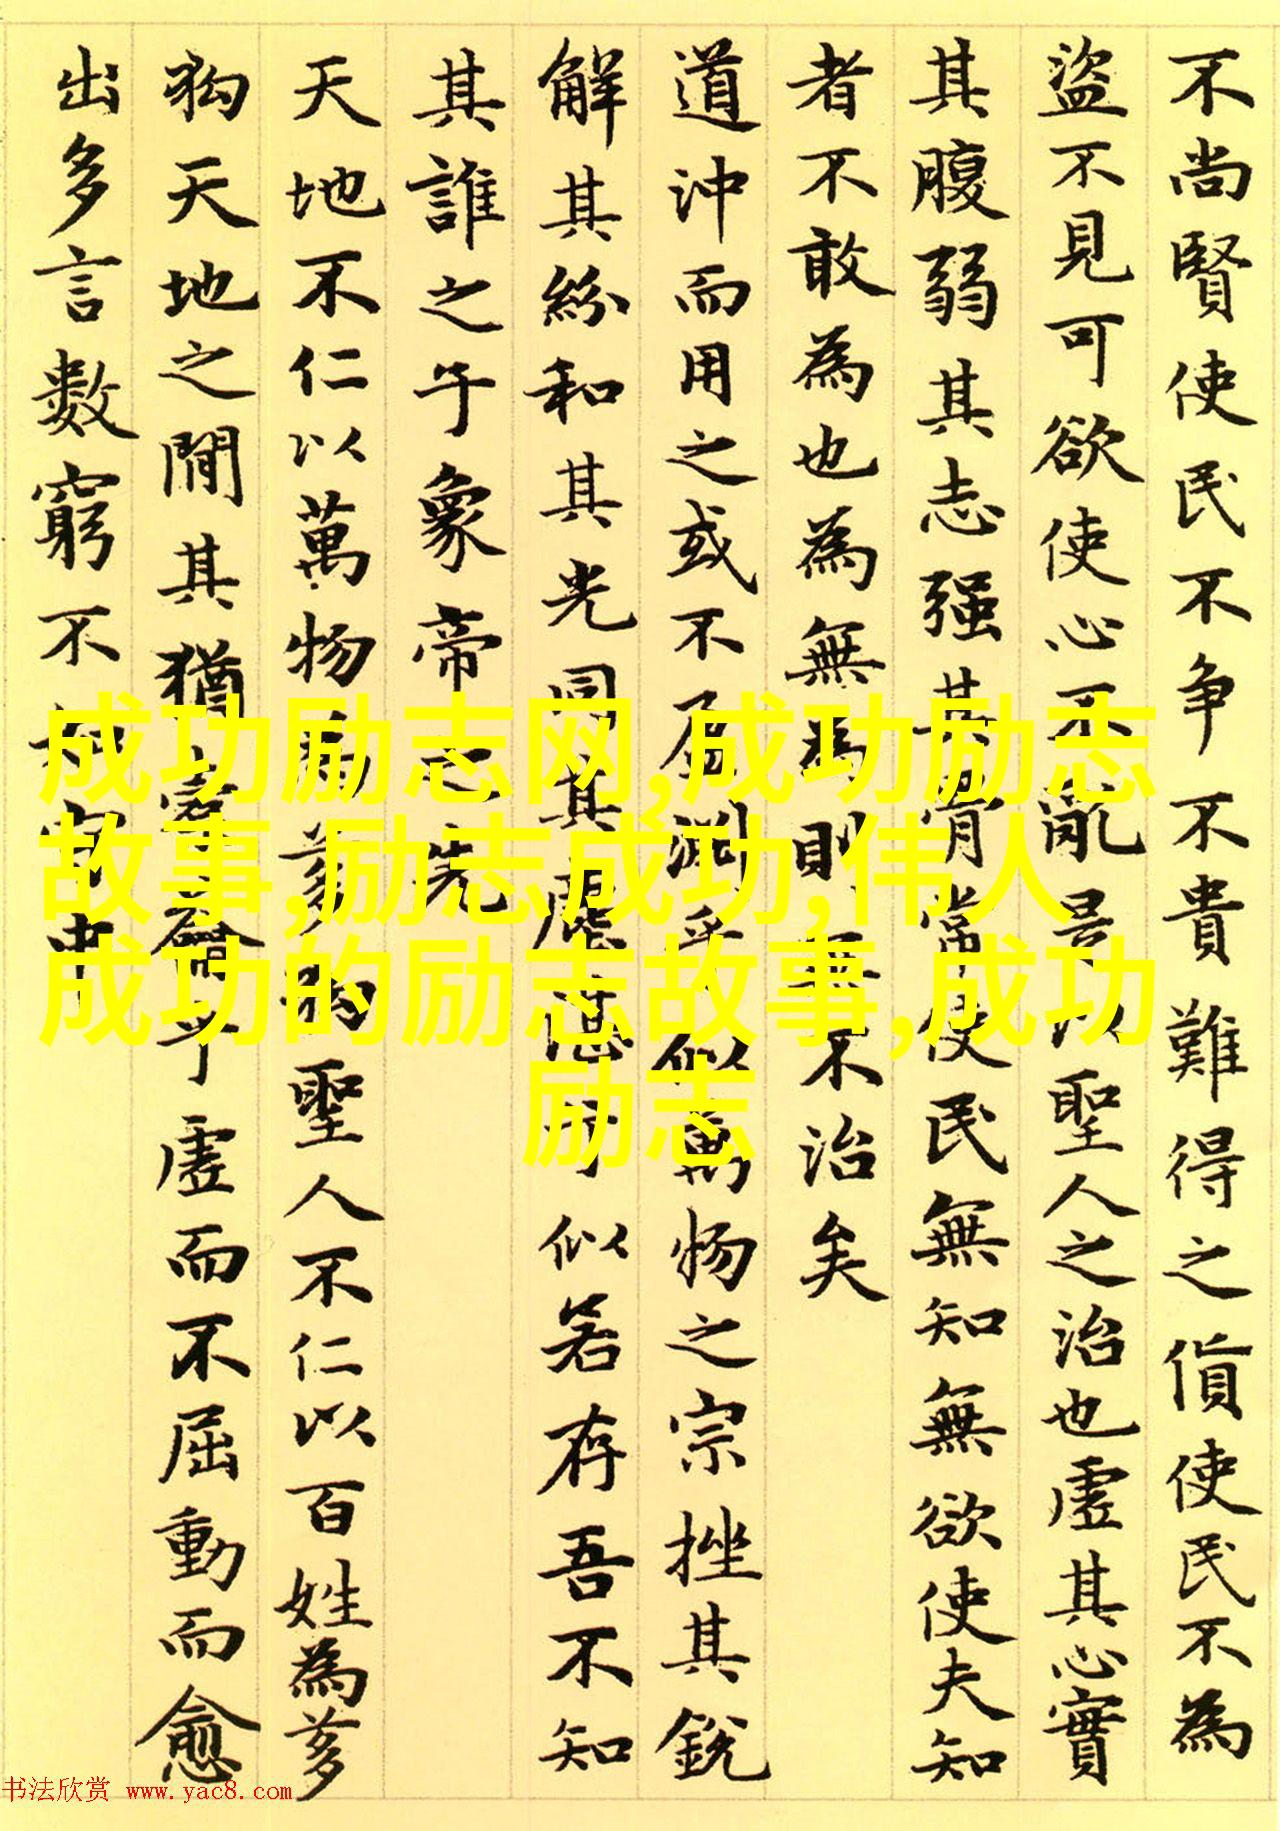 不尚賢使民不争不貴難得之貨使民不為
盜不見可欲使心不亂是以聖人之治也虛其心實
其腹弱其志强其骨常使民無知無欲使夫知
者不敢為也為無為則無不治矣
道沖而用之或不盈淵乎似萬物之宗挫其銳
解其紛和其光同其塵湛乎似若存吾不知
其誰之子象帝之先
天地不仁以萬物為芻狗聖人不仁以百姓為芻
狗天地之間其猶橐籥乎虛而不屈動而愈
出多言數窮不如守中
成功励志网,成功励志
故事,励志成功,伟人
成功的励志故事,成功
励志
书法欣赏 www.yac8.com